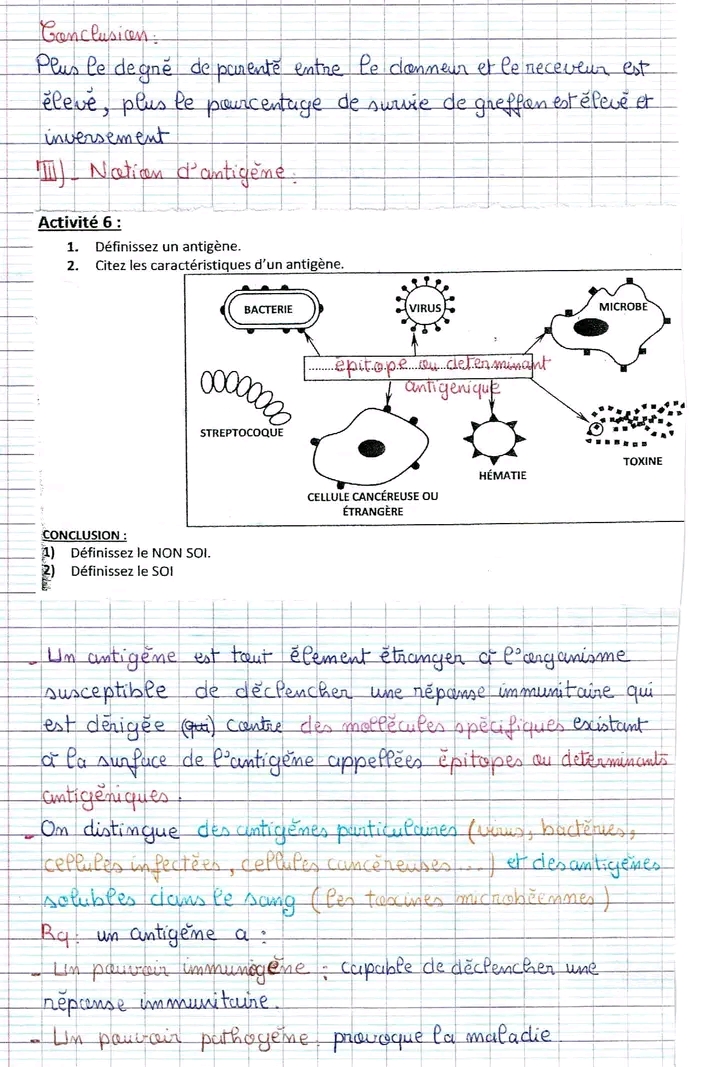 Conclusion :
Plus le degré de parenté entre le donneur et le receveur est
élevé, plus le pourcentage de survie de greffon est élevé et
inversement
III)- Notion d'antigène :
Activité 6 :
1. Définissez un antigène.
2. Citez les caractéristiques d'un antigène.
BACTERIE
VIRUS
MICROBE
épitope ou determinant
antigenique
STREPTOCOQUE
HÉMATIE
TOXINE
CELLULE CANCÉREUSE OU
ÉTRANGÈRE
CONCLUSION :
1) Définissez le NON SOI.
2) Définissez le SOI
- Un antigène est tout élement étranger à l'organisme
susceptible de déclencher une réponse immunitaire qui
est dérigée (qui) contre des mollécules spécifiques existant
à la surface de l'antigène appellées épitopes ou determinants
antigéniques.
- On distingue des antigènes particulaires (virus, bactéries,
cellules infectées, cellules cancéreuses ...) et des antigènes
solubles dans le sang (les toxines microbéennes)
Rq : un antigène a :
- Un pouvoir immunogène : capable de déclencher une
réponse immunitaire.
- Un pouvoir pathogène : provoque la maladie